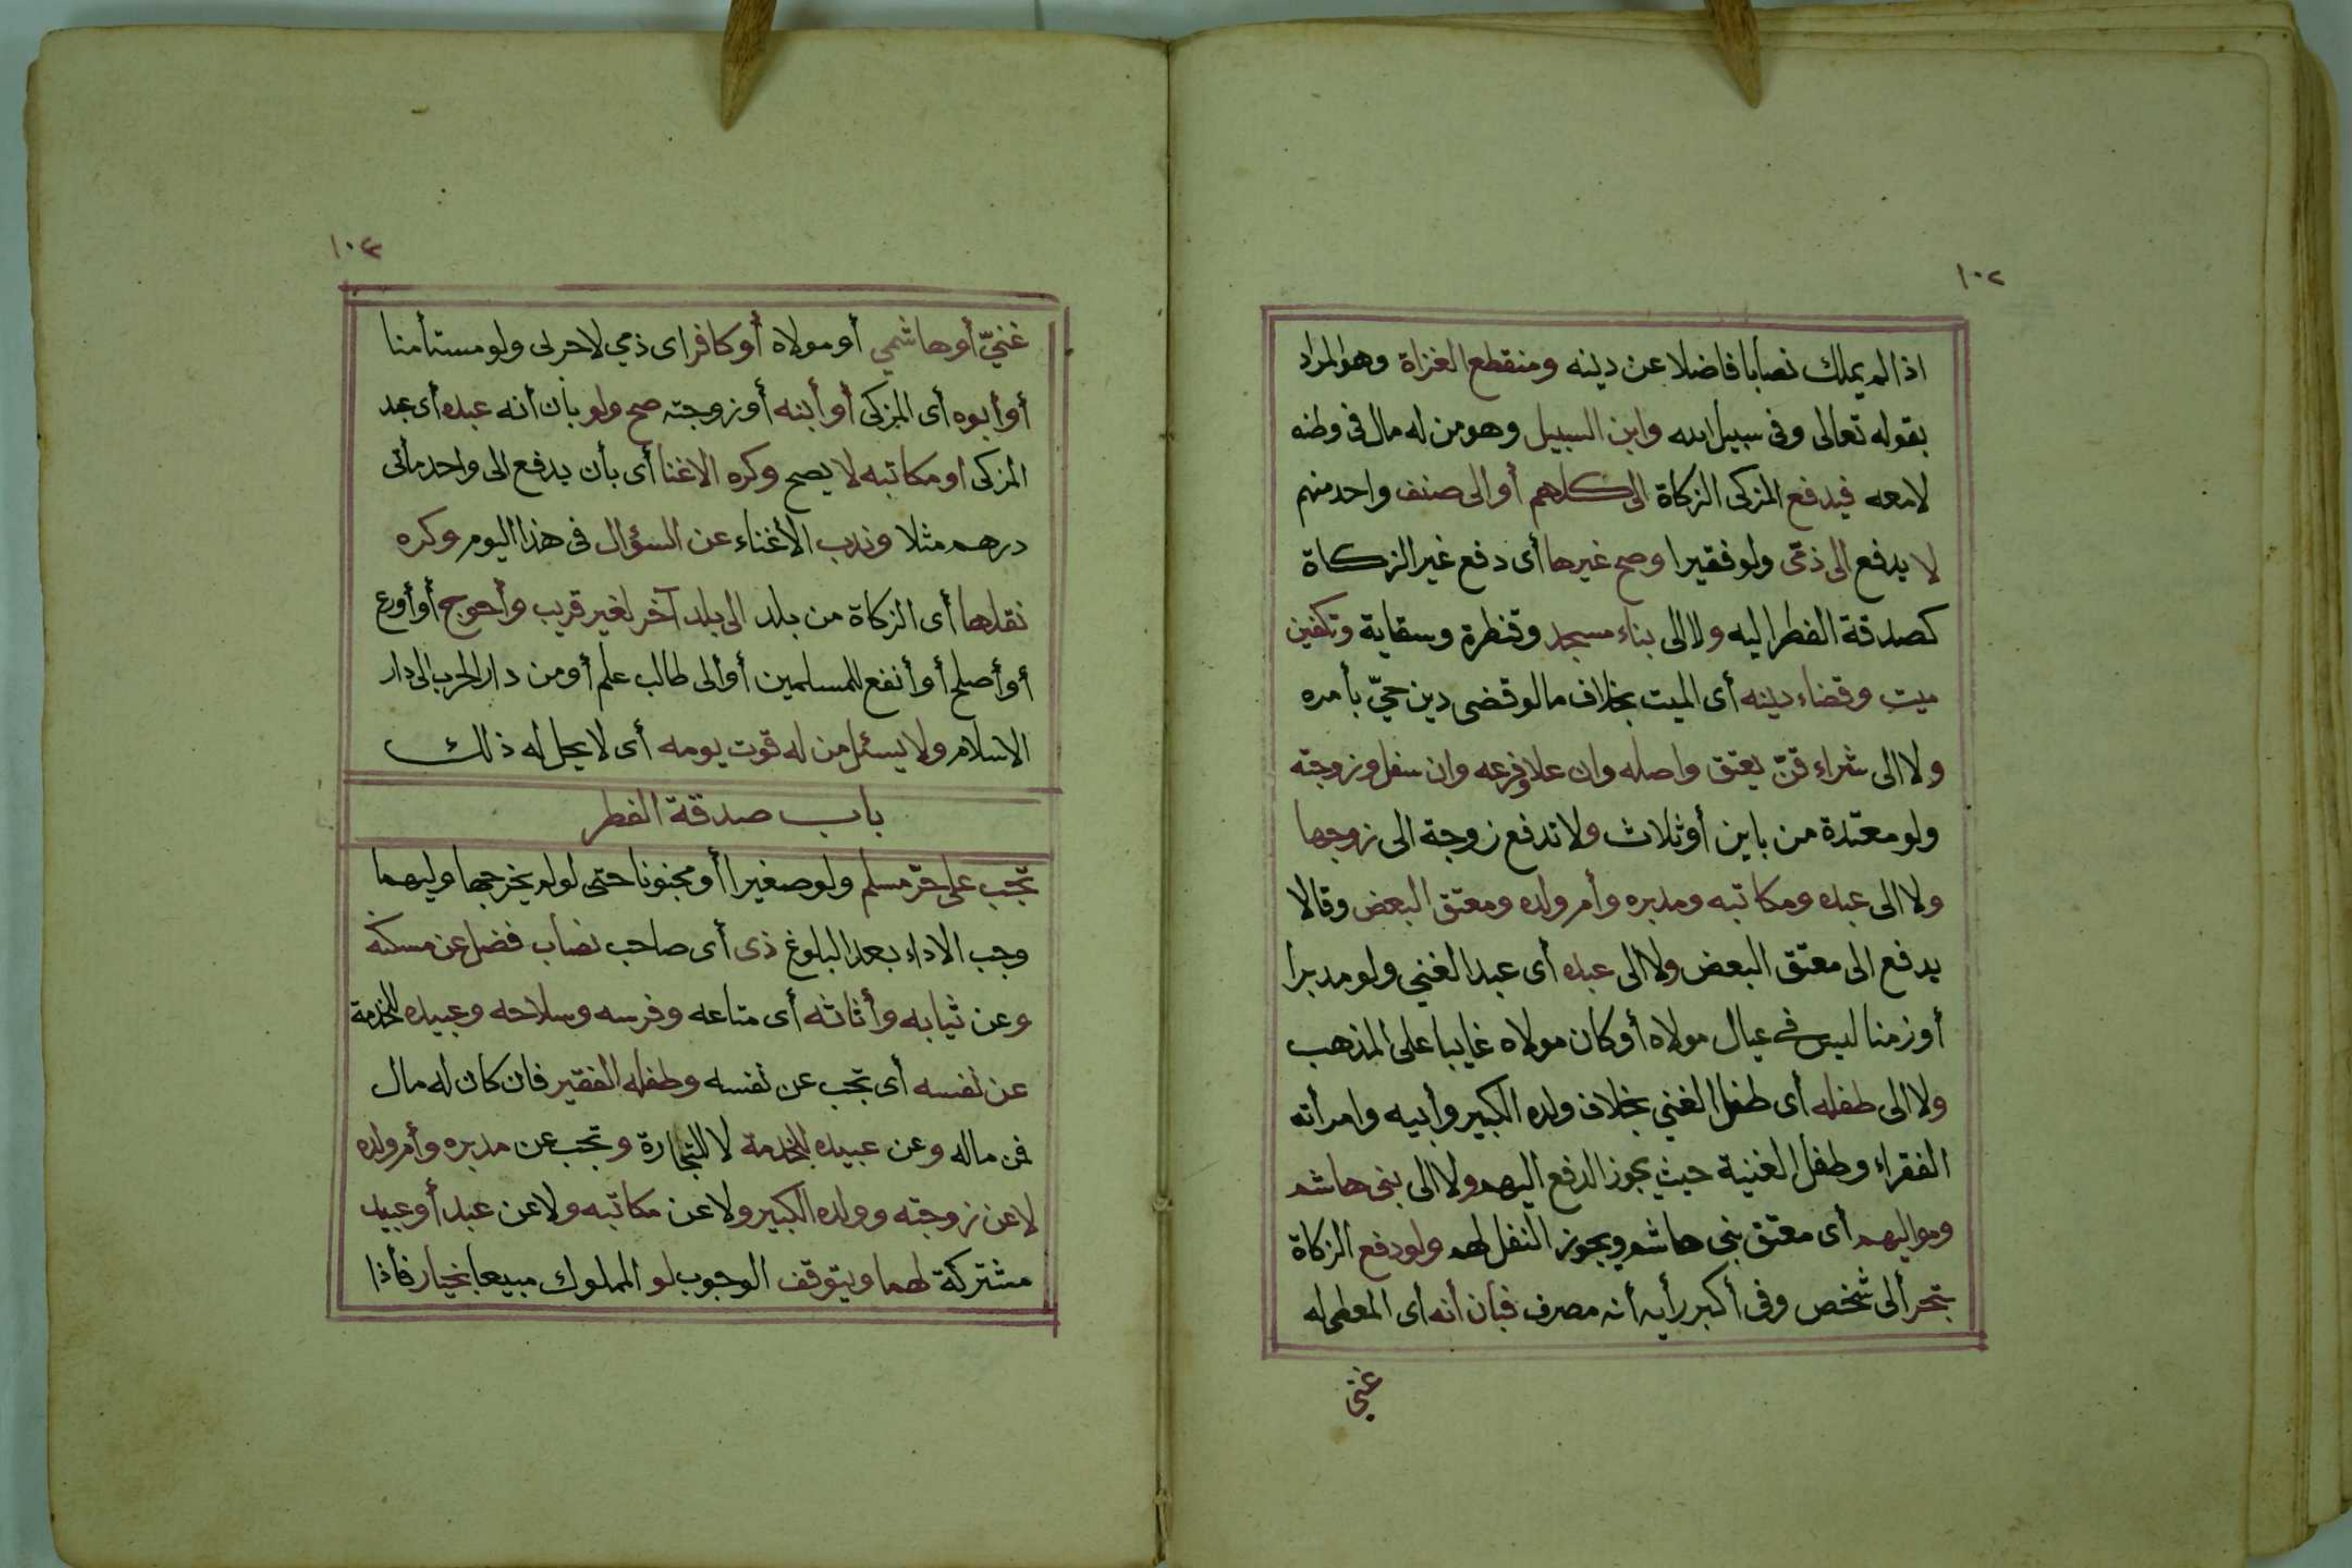 ١٠٢
اذا لم يملك نصابا فاضلا عن دينه ومنقطع الغزاة وهو المراد
بقوله تعالى وفى سبيل الله وابن السبيل وهو من له مال فى وطنه
لامعه فيدفع المزكى الزكاة الى كلهم أو الى صنف واحد منهم
لا يدفع الى ذمى ولو فقيرا وصح غيرها أى دفع غير الزكاة
كصدقة الفطر اليه ولا الى بناء مسجد وقنطرة وسقاية وتكفين
ميت وقضاء دينه أى الميت بخلاف ما لو قضى دين حيّ بأمره
ولا الى شراء قنّ يعتق واصله وان علا وفرعه وان سفل وزوجته
ولو معتدة من باين أو ثلاث ولا تدفع زوجة الى زوجها
ولا الى عبده ومكاتبه ومدبره وأم ولده ومعتق البعض وقالا
يدفع الى معتق البعض ولا الى عبده أى عبد الغني ولو مدبرا
أو زمنا ليس في عيال مولاه أو كان مولاه غايبا على المذهب
ولا الى طفله أى طفل الغني بخلاف ولده الكبير وأبيه وامرأته
الفقراء وطفل الغنية حيث يجوز الدفع اليهم ولا الى بنى هاشم
ومواليهم أى معتق بنى هاشم ويجوز النفل لهم ولو دفع الزكاة
بتحر ألى شخص وفى أكبر رأيه أنه مصرف فبان أنه أى المعطى له
غنى
١٠٣
غنيّ أو هاشمي أو مولاه أو كافر اى ذمي لا حربى ولو مستأمنا
أو أبوه أى المزكى أو أبنه أو زوجته صح ولو بان أنه عبده أى عبد
المزكى او مكاتبه لا يصح وكره الاغنا أى بأن يدفع الى واحد مأتى
درهم مثلا وندب الأغناء عن السؤال فى هذا اليوم وكره
نقلها أى الزكاة من بلد الى بلد آخر لغير قريب وأحوج أو أورع
أو أصلح أو أنفع للمسلمين أو الى طالب علم أو من دار الحرب الى دار
الاسلام ولا يسئل من له قوت يومه أى لا يحل له ذلك
باب صدقة الفطر
تجب على حرّ مسلم ولو صغيرا أو مجنونا حتى لو لم يخرجها وليهما
وجب الاداء بعد البلوغ ذى أى صاحب نصاب فضل عن مسكنه
وعن ثيابه وأثاثه أى متاعه وفرسه وسلاحه وعبيده للخدمة
عن نفسه أى تجب عن نفسه وطفله الفقير فان كان له مال
فمن ماله وعن عبيده للخدمة لا للتجارة وتجب عن مدبره وأم ولده
لا عن زوجته وولده الكبير ولا عن مكاتبه ولا عن عبد أو عبيد
مشتركة لهما ويتوقف الوجوب لو المملوك مبيعا بخيار فأذا